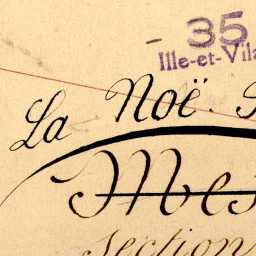 - 35
Ille-et-Vil
La Noë
Section